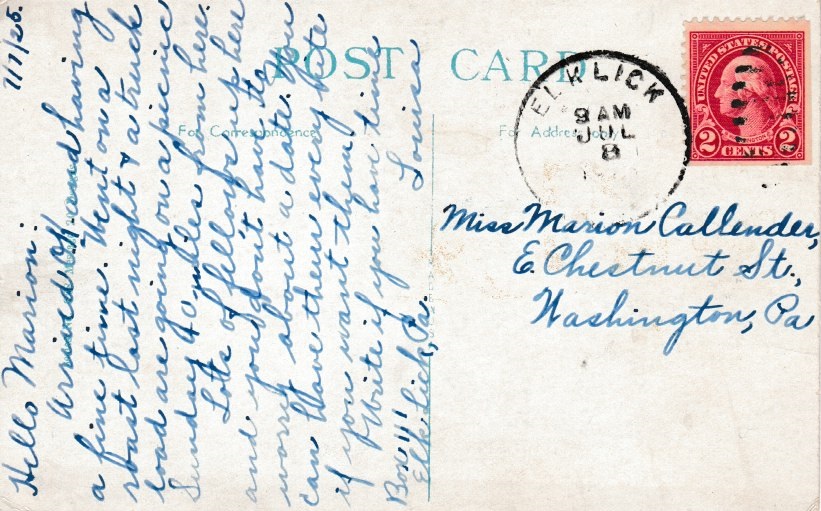 7/7/25.
Hello Marion:
Arrived OK and having
a fine time. Went on a
roast last night & a truck
load are going on a picnic
Sunday 40 miles from here.
Lots of fellows up here
and you don't have to
worry about a date. You
can have them every nite
if you want them.
Write if you have time
Louisa
Box 111
Elk Lick, Pa.
POST CARD
For Correspondence
For Address Only
ELK LICK
9 AM
JUL
8
UNITED STATES POSTAGE
2 CENTS 2
Miss Marion Callender,
E. Chestnut St.,
Washington, Pa